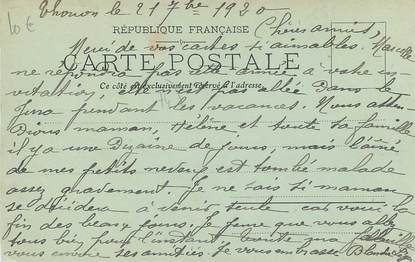 10 €
Thonon le 21 7bre 1920
Chers amis,
RÉPUBLIQUE FRANÇAISE
Merci de vos cartes si aimables. Marcelle
CARTE POSTALE
ne répondra pas cette année à votre in
Ce côté est exclusivement réservé à l'adresse.
vitation, elle n'est pas allée dans le
Jura pendant les vacances. Nous atten
Dions maman, Hélène et toute sa famille
il y a une Dizaine de jours, mais l'aîné
de mes petits neveux est tombé malade
assez gravement. Je ne sais si maman
se décidera à venir seule car voici la
fin des beaux jours. Je pense que vous allez
tous bien pour l'instant. toute ma famille
vous envoie ses amitiés. Je vous embrasse Blanche